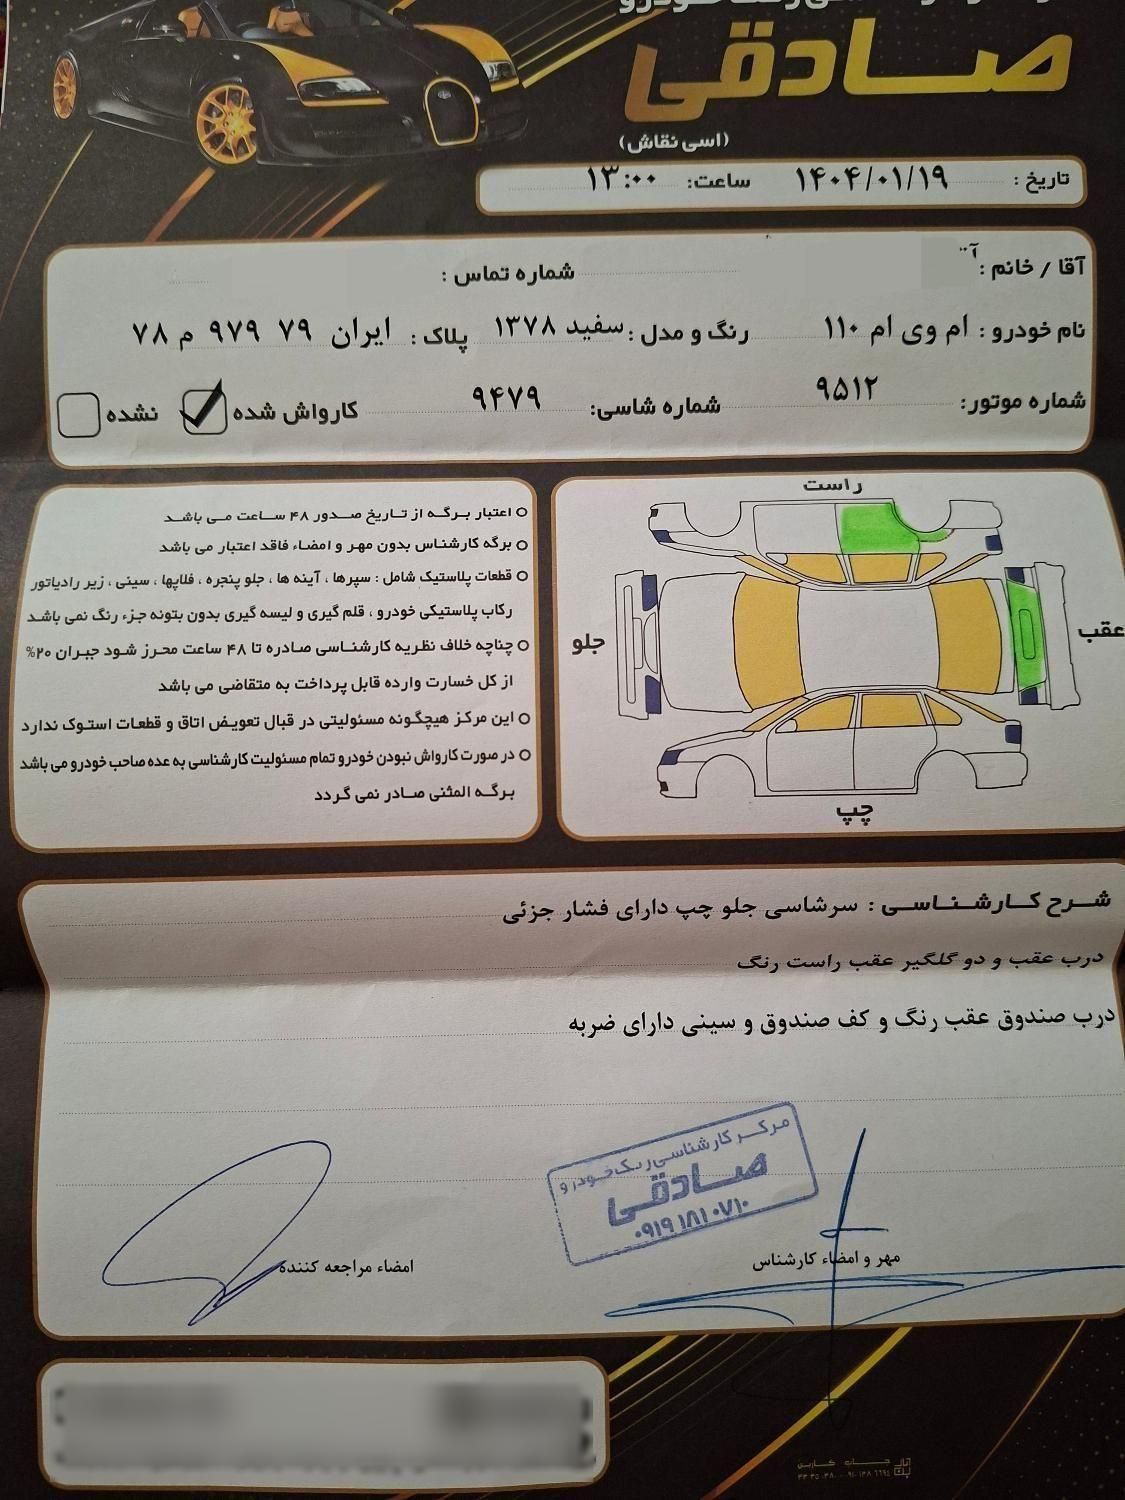 صادقی
(اسی نقاش)
تاریخ : ۱۴۰۴/۰۱/۱۹ ساعت: ۱۳:۰۰
آقا / خانم : شماره تماس :
نام خودرو : ام وی ام ۱۱۰ رنگ و مدل : سفید ۱۳۷۸ پلاک : ایران ۷۹ ۹۷۹ م ۷۸
شماره موتور: ۹۵۱۲ شماره شاسی: ۹۴۷۹ کارواش شده نشده
راست
جلو
عقب
چپ
اعتبار برگه از تاریخ صدور ۴۸ ساعت می باشد
برگه کارشناس بدون مهر و امضاء فاقد اعتبار می باشد
قطعات پلاستیک شامل : سپرها ، آینه ها ، جلو پنجره ، فلاپها ، سینی ، زیر رادیاتور
رکاب پلاستیکی خودرو ، قلم گیری و لیسه گیری بدون بتونه جزء رنگ نمی باشد
چناچه خلاف نظریه کارشناسی صادره تا ۴۸ ساعت محرز شود جبران ۲۰%
از کل خسارت وارده قابل پرداخت به متقاضی می باشد
این مرکز هیچگونه مسئولیتی در قبال تعویض اتاق و قطعات استوک ندارد
در صورت کارواش نبودن خودرو تمام مسئولیت کارشناسی به عده صاحب خودرو می باشد
برگه المثنی صادر نمی گردد
شرح کارشناسی : سرشاسی جلو چپ دارای فشار جزئی
درب عقب و دو گلگیر عقب راست رنگ
درب صندوق عقب رنگ و کف صندوق و سینی دارای ضربه
مرکز کارشناسی رنگ خودرو
صادقی
۰۹۱۹ ۱۸۱ ۰۷۱۰
مهر و امضاء کارشناس
امضاء مراجعه کننده